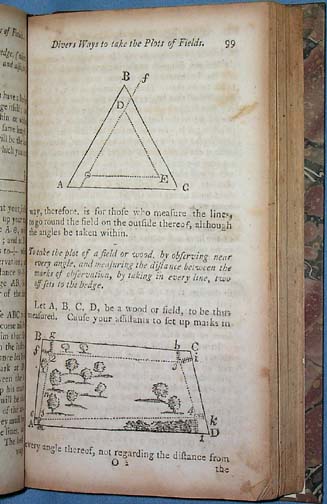 Divers Ways to take the Plots of Fields. 99
B f
D
A E C
way, therefore, is for those who measure the lines,
to go round the field on the outside thereof, although
the angles be taken within.
To take the plot of a field or wood, by observing near
every angle, and measuring the distance between the
marks of observation, by taking in every line, two
off sets to the hedge.
Let A, B, C, D, be a wood or field, to be thus
measured. Cause your assistants to set up marks in
B g h C
f i
A k
l D
every angle thereof, not regarding the distance from
O 2
the